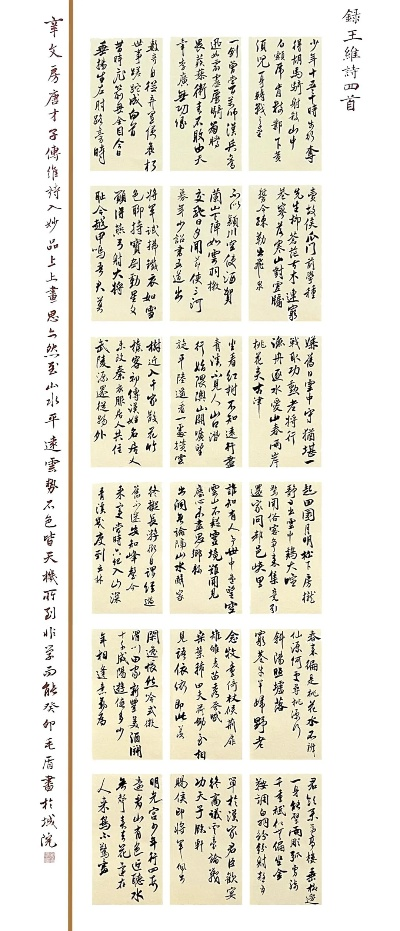 錄王維詩四首
少年十五二十時步行奪
得胡馬騎射殺山中
白額虎肯數鄴下黃
須兒一身轉戰三千里
一劍曾當百萬師漢兵奮
迅如霹靂虜騎奔騰
畏蒺藜衛青不敗由天
幸李廣無功緣
數奇自從棄置便衰朽
世事蹉跎成白首
昔時飛箭無全目今日
垂楊生左肘路旁時
賣故侯瓜門前學種
先生柳蒼茫古木連窮
巷寥落寒山對虛牖
誓令疏勒出飛泉
不似潁川空使酒賀
蘭山下陣如雲羽檄
交馳日夕聞節使三河
募年少詔書五道出
將軍試拂鐵衣如雪
色聊持寶劍動星文
願得燕弓射大將
恥令越甲鳴吾君莫
嫌舊日雲中守猶堪一
戰取功勳老將行
漁舟逐水愛山春兩岸
桃花夾古津
坐看紅樹不知遠行盡
青溪不見人山口潛
行始隈隩山開曠望
旋平陸遙看一處攢雲
樹近入千家散花竹
樵客初傳漢姓名居人
未改秦衣服居人共住
武陵源還從物外
起田園月明松下房櫳
靜日出雲中雞犬喧
驚聞俗客爭來集競引
還家問都邑峽里
誰知有人事世中遙望空
雲山不疑靈境難聞見
塵心未盡思鄉縣
出洞無論隔山水辭家
終擬長游衍自謂經過
舊不迷安知峰壑今
來變當時只記入山深
青溪幾度到雲林
春來遍是桃花水不辨
仙源何處尋桃源行
斜陽照墟落
窮巷牛羊歸野老
念牧童倚杖候荊扉
雉雊麥苗秀蠶眠
桑葉稀田夫荷鋤至相
見語依依即此羨
閑逸悵然吟式微
渭川田家新豐美酒斗
十千咸陽遊俠多少
年相逢意氣為
君飲系馬高樓垂柳邊
一身能擘兩雕弧虜騎
千重只似無偏坐金
鞍調白羽紛紛射殺五
單于漢家君臣歡宴
終高議雲臺論戰
功天子臨軒
賜侯印將軍佩出
明光宮少年行四首
遠看山有色近聽水
無聲春去花還在
人來鳥不驚畫
辛文房唐才子傳維詩入妙品上上畫思亦然至山水平遠雲勢石色皆天機所到非學而能癸卯毛眉書於城院